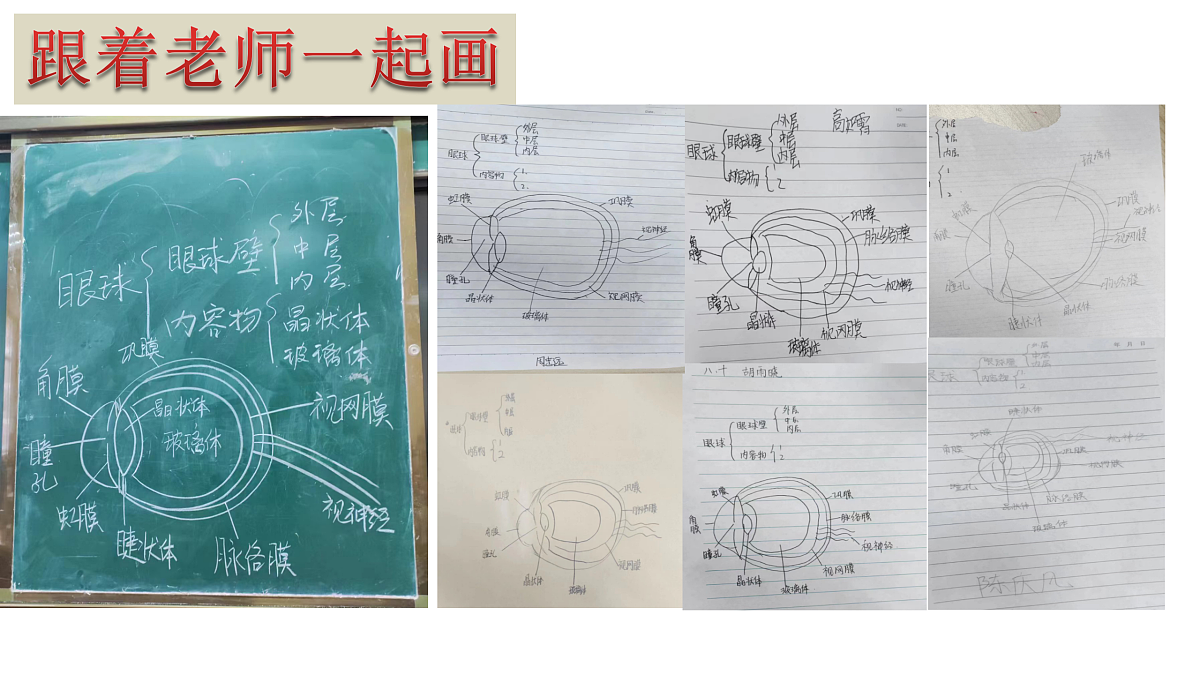 跟着老师一起画
眼球
眼球壁
外层
中层
内层
内容物
晶状体
玻璃体
巩膜
角膜
晶状体
玻璃体
视网膜
瞳孔
虹膜
睫状体
脉络膜
视神经
眼球
眼球壁
外层
中层
内层
内容物
1.
2.
虹膜
巩膜
角膜
视神经
瞳孔
晶状体
玻璃体
视网膜
眼球
眼球壁
外层
中层
内层
内容物
1
2
虹膜
巩膜
脉络膜
角膜
视神经
瞳孔
晶状体
玻璃体
视网膜
外层
中层
内层
1
2
玻璃体
虹膜
巩膜
角膜
视网膜
瞳孔
脉络膜
晶状体
睫状体
眼球
眼球壁
外层
中层
内层
内容物
1
2
虹膜
巩膜
脉络膜
角膜
瞳孔
视网膜
晶状体
玻璃体
八.十 胡雨晓
眼球
眼球壁
外层
中层
内层
内容物
1
2
虹膜
巩膜
脉络膜
角膜
视神经
瞳孔
视网膜
晶状体
玻璃体
年 月 日
眼球壁
外层
中层
内层
内容物
1
2
睫状体
虹膜
视神经
角膜
巩膜
视网膜
瞳孔
脉络膜
晶状体
玻璃体